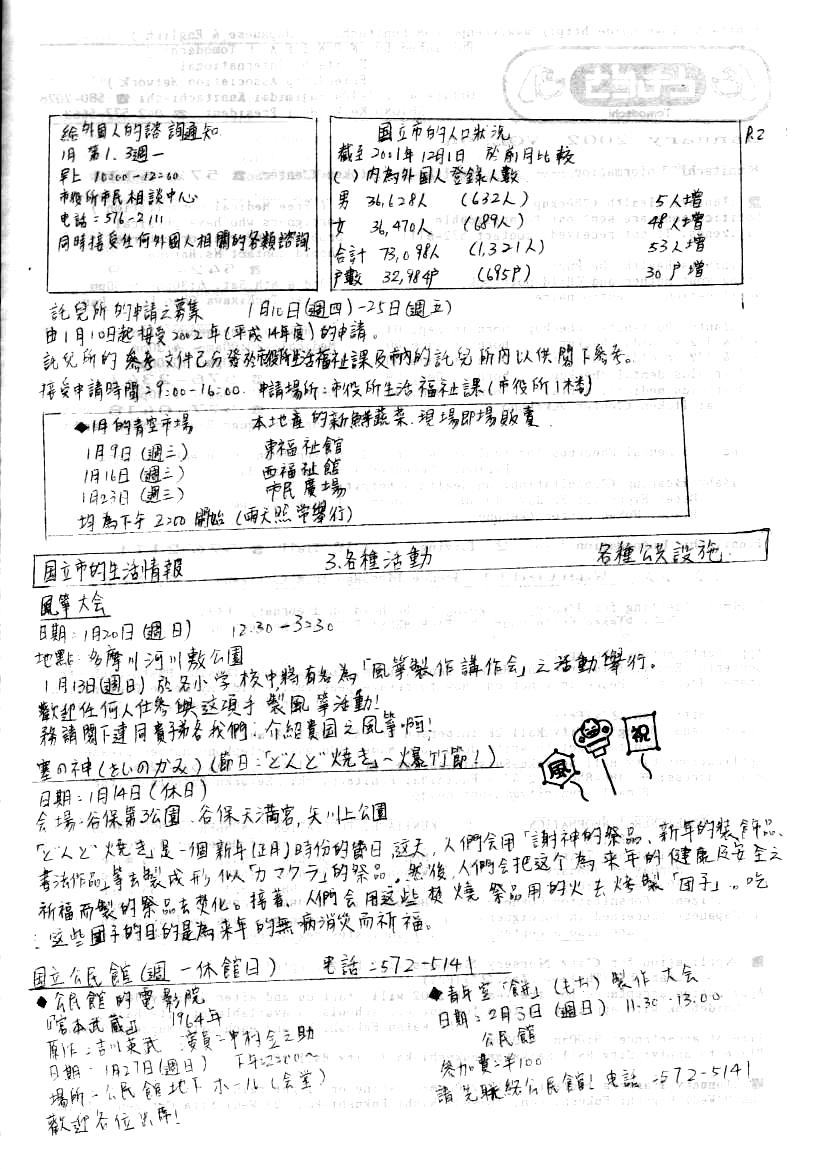 P.2
給外国人的諮詢通知
1月 第1.3週一
早上 10:00-12:00
市役所市民相談中心
电話:576-2111
同時接受任何外國人相關的各類諮詢
国立市的人口狀况
截至2001年12月1日 於前月比較
( )内為外国人登錄人數
男 36,628人 (632人) 5人增
女 36,470人 (689人) 48人增
合計 73,098人 (1,321人) 53人增
户數 32,984户 (695户) 30户增
託兒所的申請之募集 1月10日(週四)-25日(週五)
由1月10日起接受2002年(平成14年度)的申請。
託兒所的参考文件已分發於市役所生活福祉課及市内的託兒所内以供閣下参考。
接受申請時間:9:00-16:00. 申請場所:市役所生活福祉課(市役所1楼)
◆1月的青空市場 本地產的新鮮蔬菜.現場即場販賣
1月9日(週三) 東福祉館
1月16日(週三) 西福祉館
1月23日(週三) 市民廣場
均為下午2:00開始(雨天照常舉行)
国立市的生活情報 3.各種活動 各種公共設施.
風箏大会
日期:1月20日(週日) 12:30-3:30
地點:多摩川河川敷公園
1月13日(週日)於各小学校中,將有名為「風箏製作講作会」之活動舉行。
歡迎任何人仕參與这項手製風箏活動!
務請閣下連同貴子弟各我們:介紹貴国之風箏啊!
風 祝
塞の神(さいのかみ)(節日:「どんど焼き」~爆竹節!)
日期:1月14日(休日)
会場:谷保第3公園、谷保天満宮,矢川上公園
「どんど焼き」是一個新年(正月)時份的節日,这天,人們会用「謝神的祭品、新年的裝飾品、
書法作品」等去製成形似「カマクラ」的祭品。然後,人們会把这个為來年的健康及安全之
祈福而製的祭品去焚化。接著,人們会用这些焚燒祭品用的火去烤製「团子」。吃
:这些团子的目的是為来年的無病消災而祈福。
国立公民館(週一休館日) 电話:572-5141
◆公民館的電影院
『宮本武蔵』 1964年
原作:吉川英武 演員:中村金之助
日期:1月27日(週日) 下午2:00~
場所:公民館地下ホール(会堂)
歡迎各位出席!
◆青年室「餅」(もち)製作大会
日期:2月3日(週日) 11:30-13:00
公民館
参加費:¥100
請先聯絡公民館! 电話:572-5141